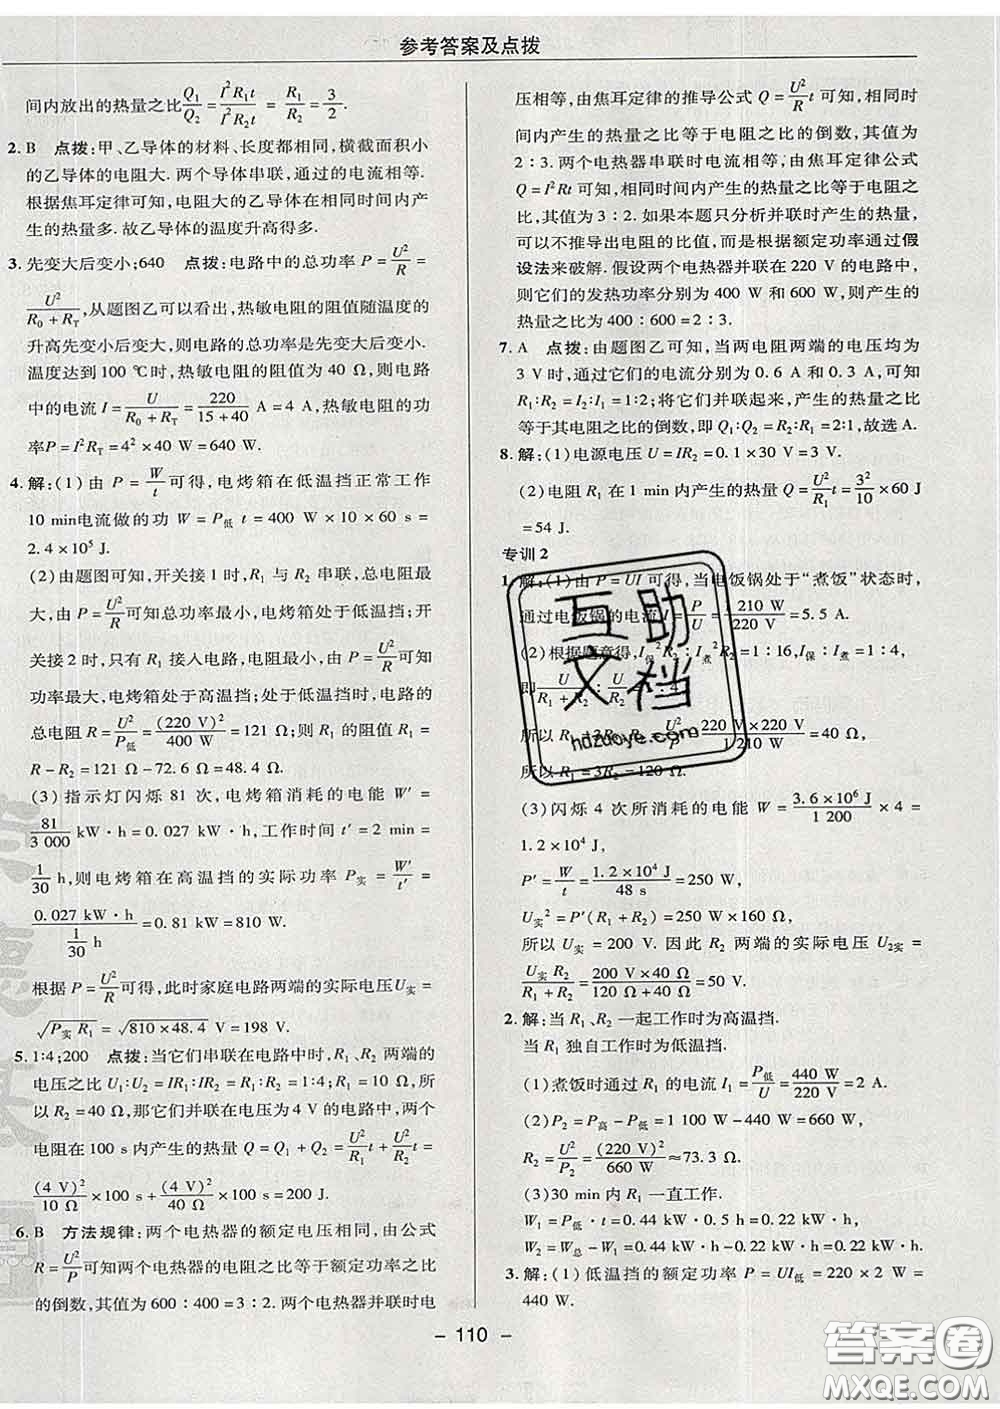 参考答案及点拨
间内放出的热量之比Q₁/Q₂=I²R₁t/I²R₂t = R₁/R₂=3/2.
2. B 点拨:甲、乙导体的材料、长度都相同,横截面积小
的乙导体的电阻大. 两个导体串联,通过的电流相等.
根据焦耳定律可知,电阻大的乙导体在相同时间内产
生的热量多. 故乙导体的温度升高得多.
3. 先变大后变小;640 点拨:电路中的总功率 P=U²/R=
U²/(R₀+R_T),从题图乙可以看出,热敏电阻的阻值随温度的
升高先变小后变大,则电路的总功率是先变大后变小.
温度达到 100 ℃时,热敏电阻的阻值为 40 Ω,则电路
中的电流 I=U/(R₀+R_T)=220/(15+40) A=4 A,热敏电阻的功
率P=I²R_T=4²×40 W=640 W.
4. 解:(1)由 P=W/t 可得,电烤箱在低温挡正常工作
10 min电流做的功 W=P低 t=400 W×10×60 s=
2.4×10⁵ J.
(2)由题图可知,开关接 1 时,R₁ 与 R₂ 串联,总电阻最
大,由 P=U²/R可知总功率最小,电烤箱处于低温挡;开
关接 2 时,只有 R₁ 接入电路,电阻最小,由 P=U²/R可知
功率最大,电烤箱处于高温挡;处于低温挡时,电路的
总电阻 R=U²/P低=(220 V)²/400 W=121 Ω;则 R₁ 的阻值 R₁=
R-R₂=121 Ω-72.6 Ω=48.4 Ω.
(3)指示灯闪烁 81 次,电烤箱消耗的电能 W′=
81/3 000 kW·h=0.027 kW·h,工作时间 t′=2 min=
1/30 h,则电烤箱在高温挡的实际功率 P实=W′/t′=
0.027 kW·h/(1/30 h)=0.81 kW=810 W.
根据 P=U²/R可得,此时家庭电路两端的实际电压U实=
√(P实 R₁)=√(810×48.4) V=198 V.
5. 1:4;200 点拨:当它们串联在电路中时,R₁、R₂ 两端的
电压之比 U₁:U₂=IR₁:IR₂=R₁:R₂=1:4;R₁=10 Ω,所
以 R₂=40 Ω,那它们并联在电压为 4 V 的电路中,两个
电阻在 100 s 内产生的热量 Q=Q₁+Q₂=U²/R₁ t+U²/R₂ t=
(4 V)²/10 Ω×100 s+(4 V)²/40 Ω×100 s=200 J.
6. B 方法规律:两个电热器的额定电压相同,由公式
R=U²/P可知两个电热器的电阻之比等于额定功率之比
的倒数,其值为 600:400=3:2. 两个电热器并联时电
压相等,由焦耳定律的推导公式 Q=U²/R t 可知,相同时
间内产生的热量之比等于电阻之比的倒数,其值为
2:3. 两个电热器串联时电流相等,由焦耳定律公式
Q=I²Rt 可知,相同时间内产生的热量之比等于电阻之
比,其值为 3:2. 如果本题只分析并联时产生的热量,
可以不推导出电阻的比值,而是根据额定功率通过假
设法来破解. 假设两个电热器并联在 220 V 的电路中,
则它们的发热功率分别为 400 W 和 600 W,则产生的
热量之比为 400:600=2:3.
7. A 点拨:由题图乙可知,当两电阻两端的电压均为
3 V 时,通过它们的电流分别为 0.6 A 和 0.3 A,可知
R₁:R₂=I₂:I₁=1:2;将它们并联起来,产生的热量之比
等于其电阻之比的倒数,即 Q₁:Q₂=R₂:R₁=2:1,故选 A.
8. 解:(1)电源电压 U=IR₂=0.1×30 V=3 V.
(2)电阻 R₁ 在 1 min 内产生的热量 Q=U²/R₁ t=3²/10×60 J
=54 J.
专训 2
1. 解:(1)由 P=UI 可得,当电饭锅处于“煮饭”状态时,
通过电饭锅的电流 I=P/U=1 210 W/220 V=5.5 A.
(2)根据题意得,I保²R₂:I煮²R₂=1:16,I保:I煮=1:4,
即U/(R₁+R₂):U/R₂=1:4,
所以 R₁=3R₂,R₂=U²/P=220 V×220 V/1 210 W=40 Ω,
所以 R₁=3R₂=120 Ω.
(3)闪烁 4 次所消耗的电能 W=3.6×10⁶ J/1 200×4=
1.2×10⁴ J,
P′=W/t=1.2×10⁴ J/48 s=250 W,
U实²=P′(R₁+R₂)=250 W×160 Ω,
所以 U实=200 V. 因此 R₂ 两端的实际电压 U₂实=
U实 R₂/(R₁+R₂)=200 V×40 Ω/(120 Ω+40 Ω)=50 V.
2. 解:当 R₁、R₂ 一起工作时为高温挡.
当 R₁ 独自工作时为低温挡.
(1)煮饭时通过 R₁ 的电流 I₁=P低/U=440 W/220 V=2 A.
(2)P₂=P高-P低=1 100 W-440 W=660 W,
R₂=U²/P₂=(220 V)²/660 W≈73.3 Ω.
(3)30 min 内 R₁ 一直工作.
W₁=P低·t=0.44 kW×0.5 h=0.22 kW·h,
W₂=W总-W₁=0.44 kW·h-0.22 kW·h=0.22 kW·h.
3. 解:(1)低温挡的额定功率 P=UI低=220×2 W=
440 W.
互助
文档
hdzuoye.com
- 110 -
答案圈
MXQE.COM